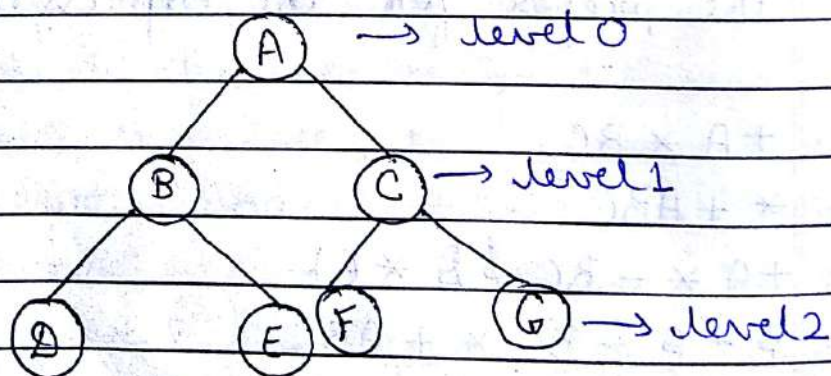 A → level 0
B C → level 1
D E F G → level 2